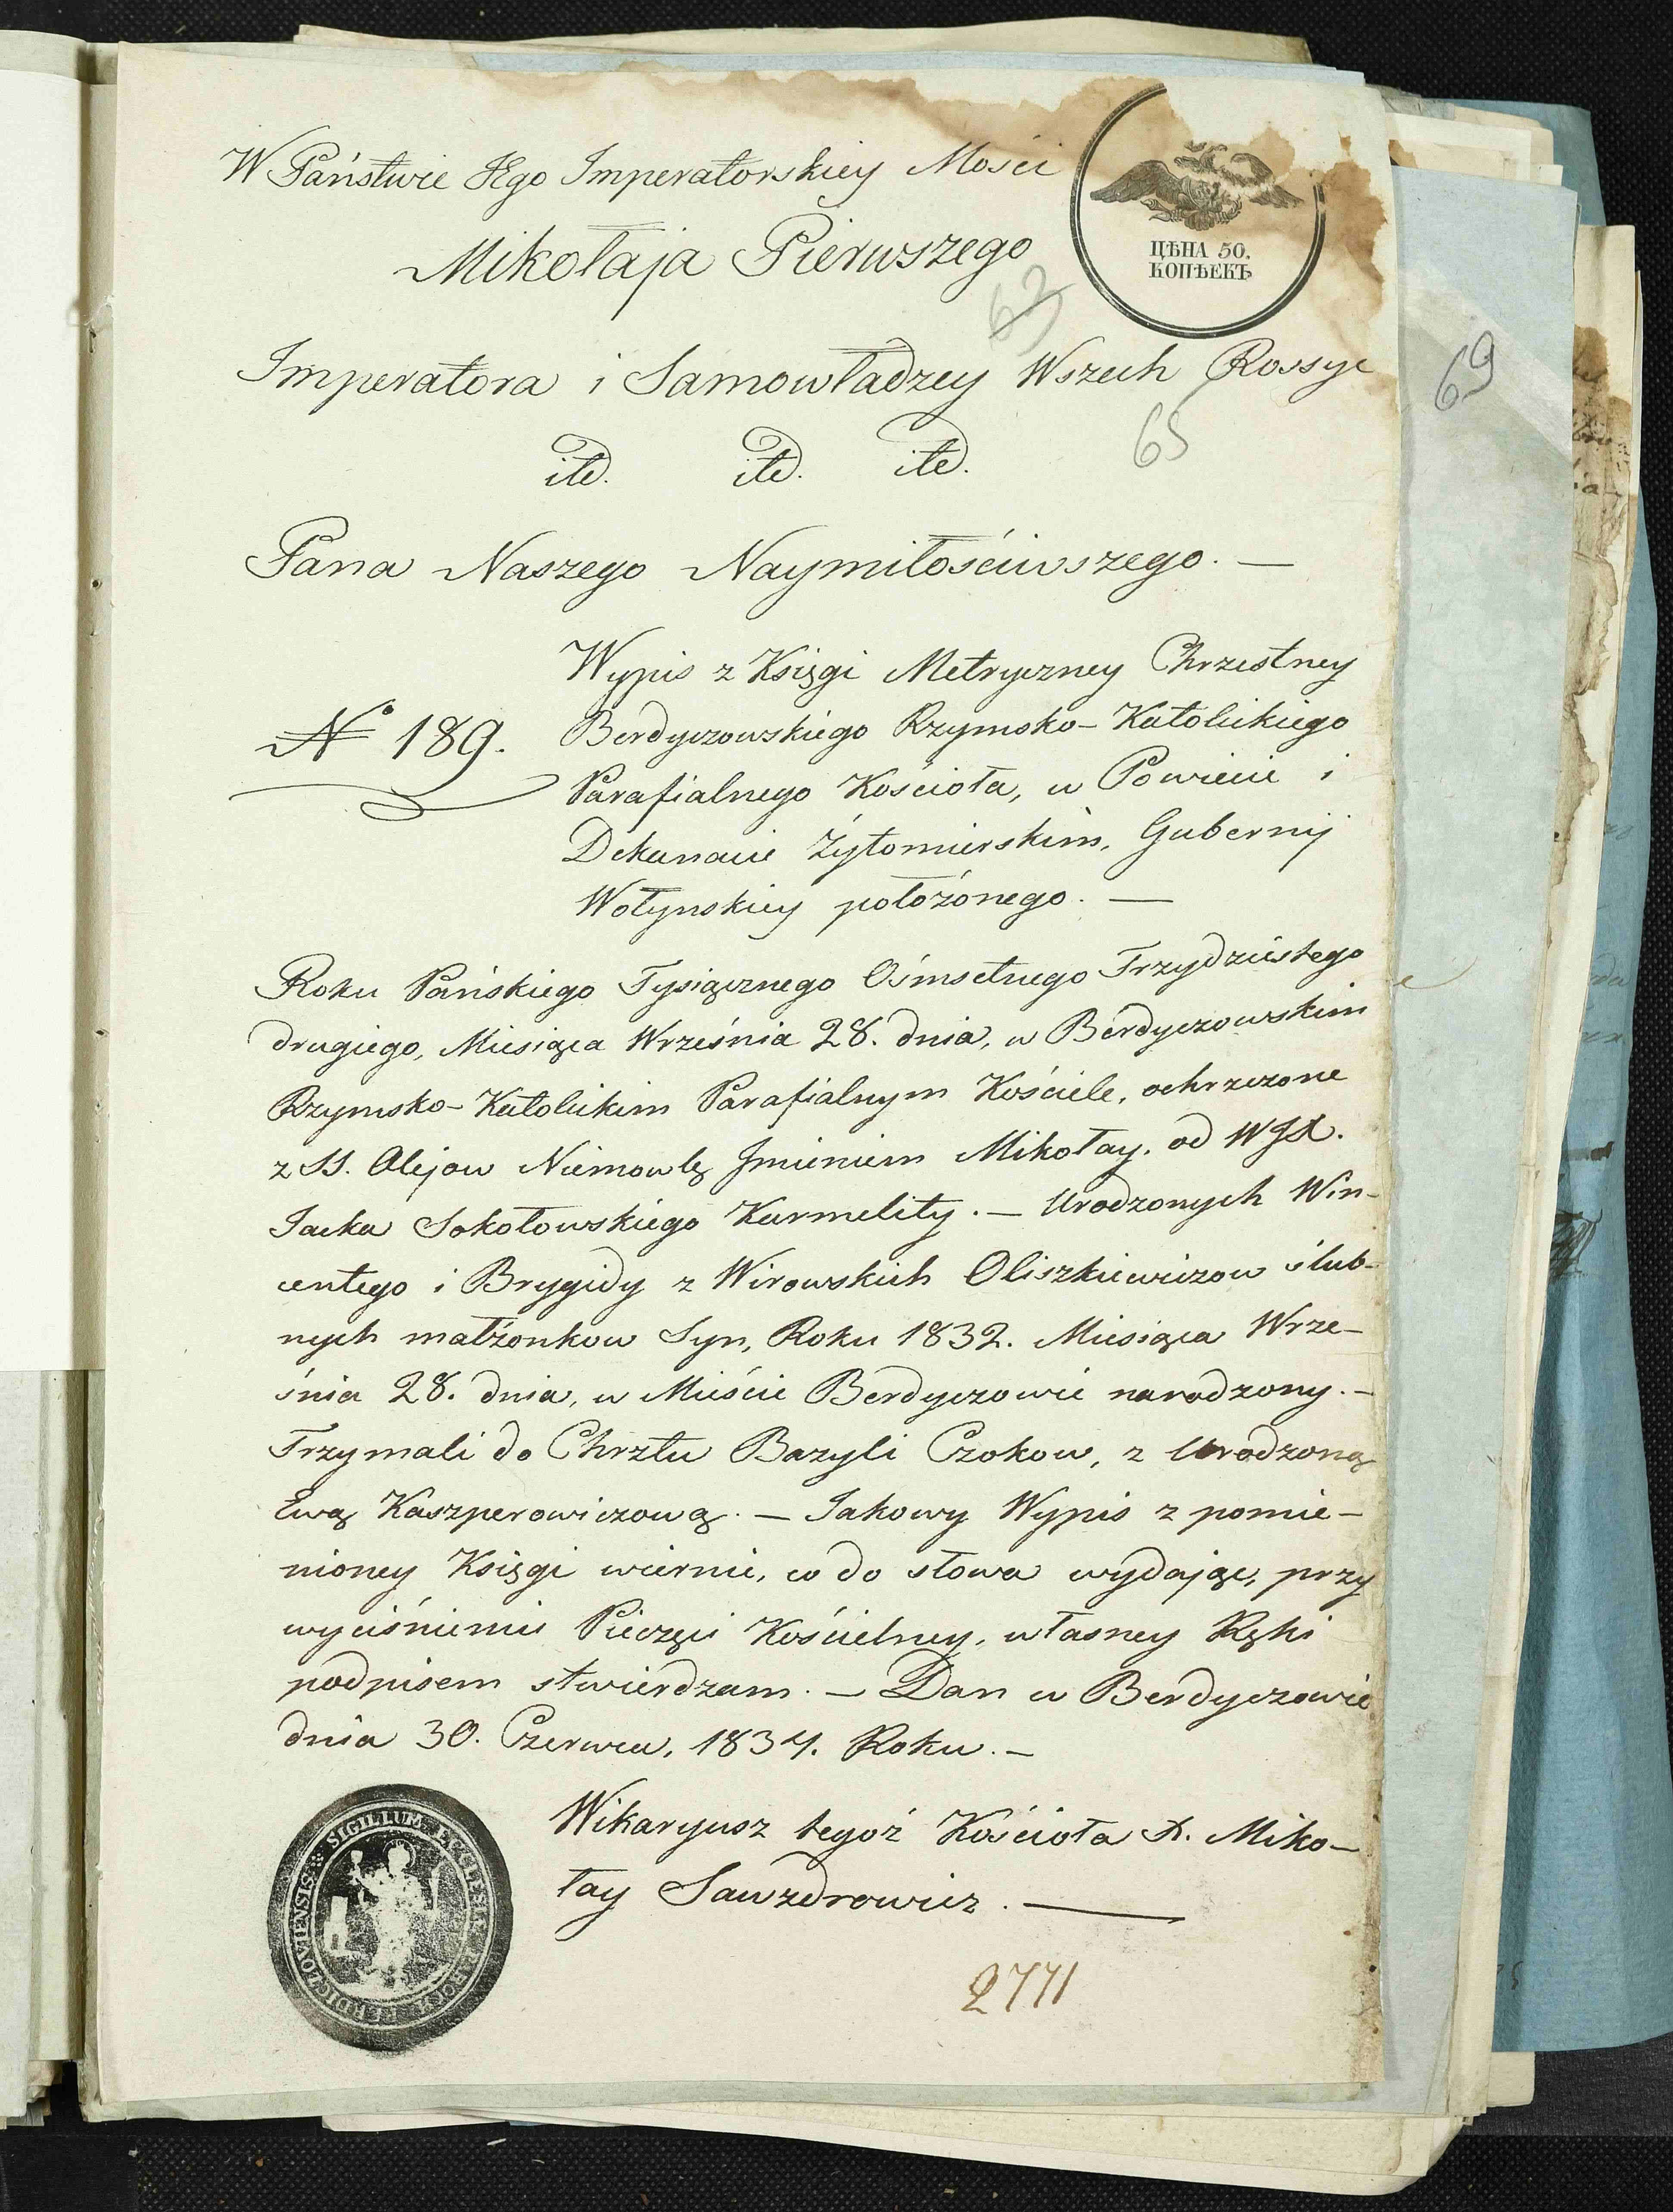 W Państwie Jego Imperatorskiey Mości
ЦѢНА 50.
КОПѢЕКЪ
Mikołaja Pierwszego
63
Imperatora i Samowładzcy Wszech Rossyi
69
itd. itd. itd.
65
Pana Naszego Naymiłościwszego. —
Wypis z Księgi Metryczney Chrzestney
№ 189.
Berdyczowskiego Rzymsko-Katolickiego
Parafialnego Kościoła, w Powiecie i
Dekanacie Żytomierskim, Gubernij
Wołynskiey położónego. —
Roku Pańskiego Tysiącznego Ośmsetnego Trzydziestego
drugiego, Miesiąca Września 28. dnia, w Berdyczowskim
Rzymsko-Katolickim Parafialnym Kościele, ochrzczone
z SS. Olejow Niemowlę Imieniem Mikołay. od WJX.
Jacka Sokołowskiego Karmelity. — Urodzonych Win-
centego i Brygidy z Wirowskich Oliszkiewiczow ślub-
nych małżonkow Syn, Roku 1832. Miesiąca Wrze-
śnia 28. dnia, w Mieście Berdyczowie narodzony. —
Trzymali do Chrztu Bazyli Czokow, z Urodzoną
Ewą Kaszperowiczową. — Jakowy Wypis z pomie-
nioney Księgi wiernie, co do słowa wydając, przy
wyciśnieniu Pieczęci Kościelney, własney Ręki
podpisem stwierdzam. — Dan w Berdyczowie
dnia 30. Czerwca, 1834. Roku. —
Wikaryusz tegoż Kościoła X. Miko-
łay Sawzdrowicz. —
SIGILLUM ECCLESIÆ PAROCH. BERDICZOVIENSIS
2771